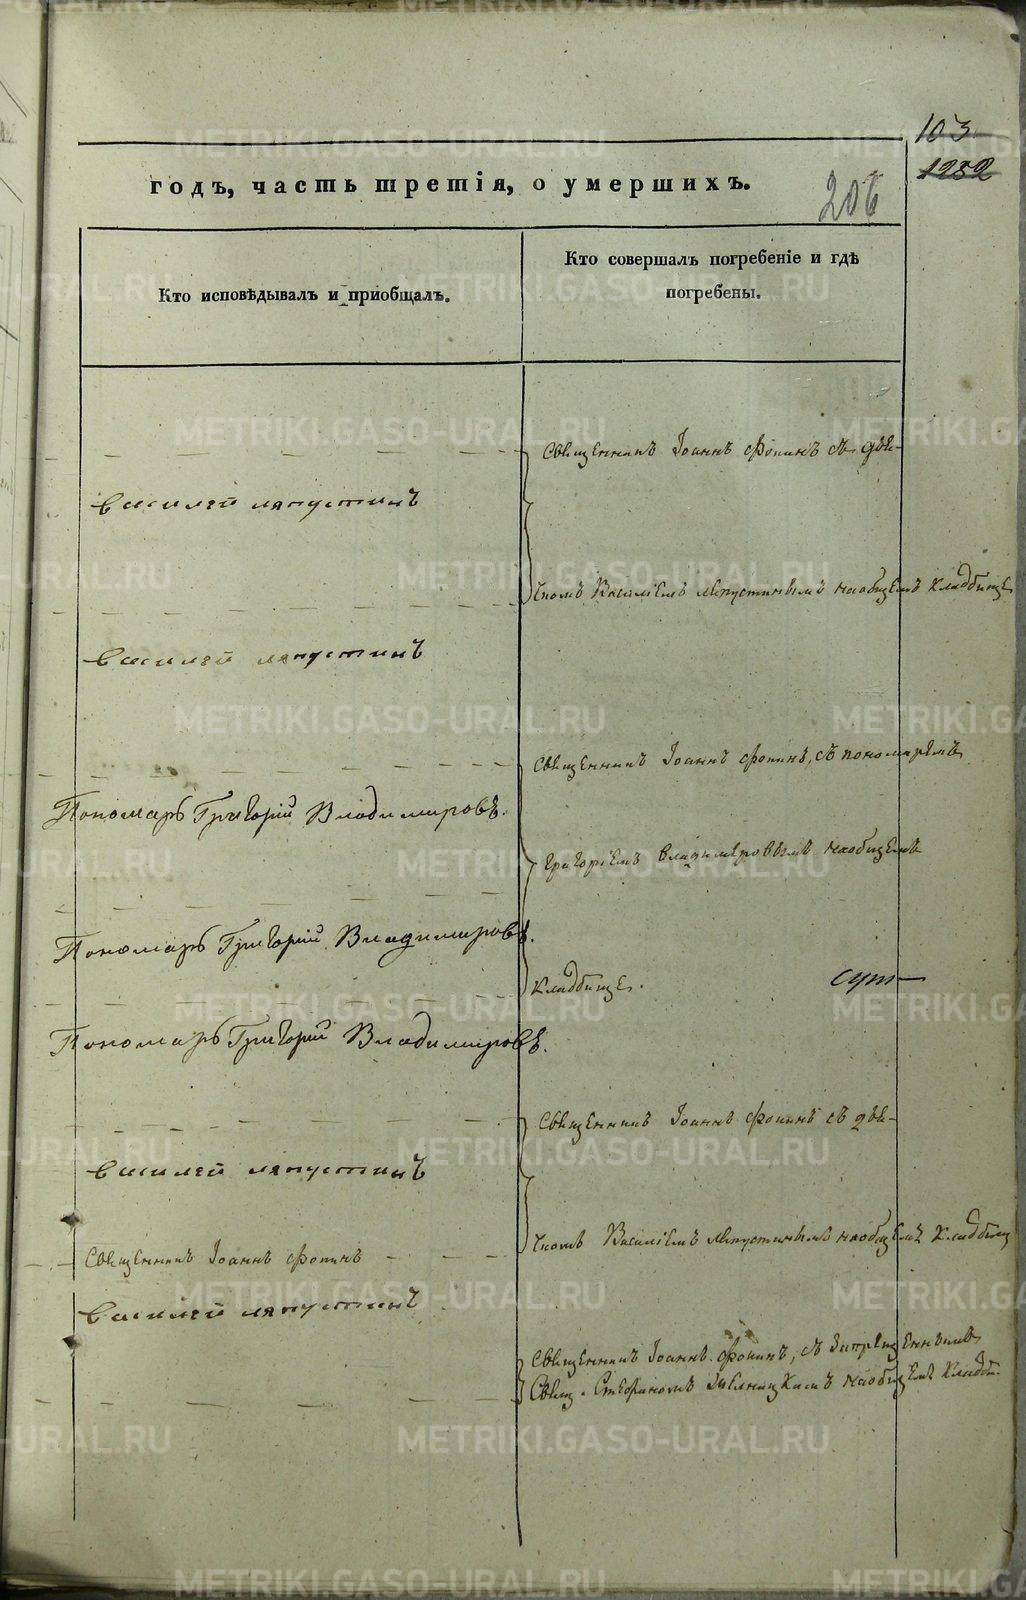 103
1252
годъ, часть третія, о умершихъ.
206
Кто исповѣдывалъ и приобщалъ.
Кто совершалъ погребеніе и гдѣ
погребены.
Священникъ Іоаннъ Фокинъ съ дья-
Василей Ляпустинъ
чкомъ Василіемъ Ляпустинымъ на общемъ кладбище
Василей Ляпустинъ
Священникъ Іоаннъ Фокинъ, съ пономаремъ
Пономарь Григорій Владимировъ.
Григоріемъ Владимировымъ на общемъ
Пономарь Григорій Владимировъ.
кладбище.
Пономарь Григорій Владимировъ.
Священникъ Іоаннъ Фокинъ съ дья-
Василей Ляпустинъ
чкомъ Василіемъ Ляпустинымъ на общемъ кладбищ
Священникъ Іоаннъ Фокинъ
Василей Ляпустинъ
Священникъ Іоаннъ Фокинъ, съ запрещеннымъ
Свящ. Стефаномъ на общемъ кладби.
METRIKI.GASO-URAL.RU